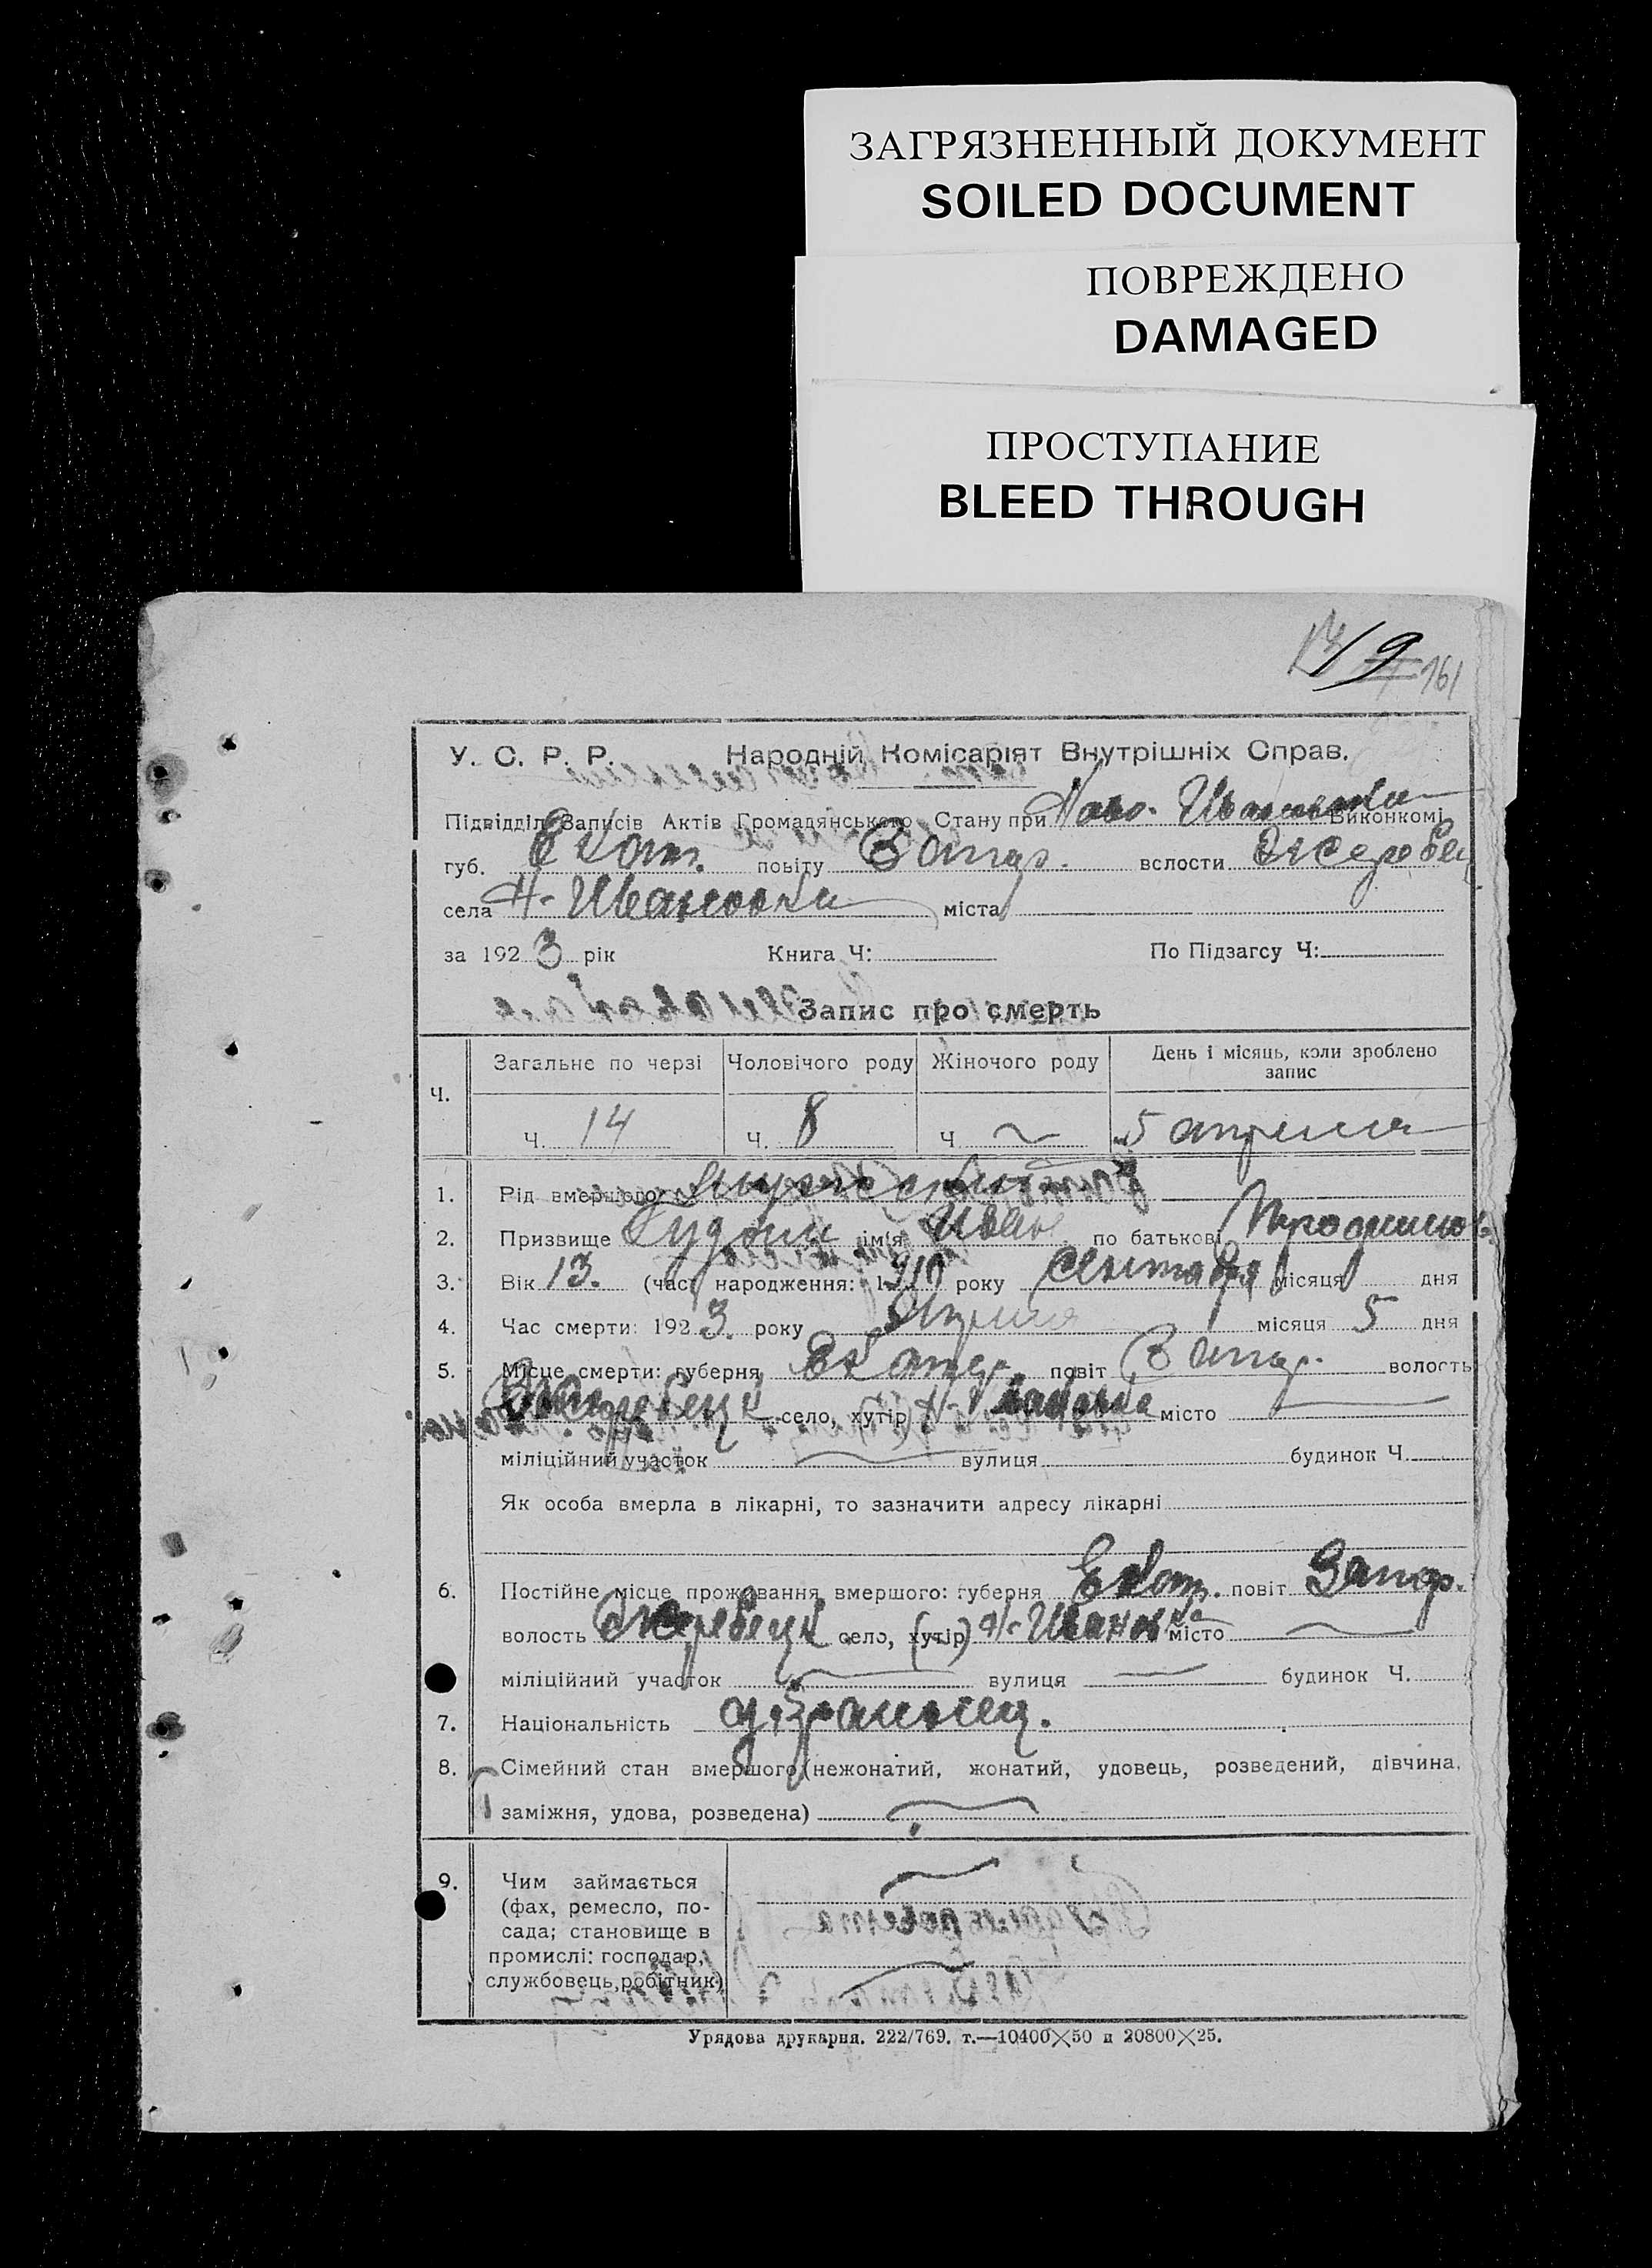 ЗАГРЯЗНЕННЫЙ ДОКУМЕНТ
SOILED DOCUMENT
ПОВРЕЖДЕНО
DAMAGED
ПРОСТУПАНИЕ
BLEED THROUGH
9 161
У. С. Р. Р. Народній Комісаріят Внутрішніх Справ.
Підвідділ Записів Актів Громадянського Стану при Ново- Виконкомі
губ. Екат. повіту Запор. вслости Жеребец
села Н- Ивановки міста
за 192 3 рік Книга Ч: По Підзагсу Ч:
Запис про смерть
Ч. Загальне по черзі Чоловічого роду Жіночого роду День і місяць, коли зроблено запис
Ч. 14 Ч. 8 Ч. 5 апреля
1. Рід вмершого: Мужской
2. Призвище ім'я Иван по батькові
3. Вік 13. (част народження: 1910 року Сентября місяця дня
4. Час смерти: 192 3. року Апреля місяця 5 дня
5. Місце смерти: губерня Екатер. повіт Запор. волость
Жеребецк село, хутір Н- місто
міліційний участок вулиця будинок Ч.
Як особа вмерла в лікарні, то зазначити адресу лікарні
6. Постійне місце проживання вмершого: губерня Екат. повіт Запор.
волость Жеребецк село, (хутір) Н- Ивановка місто
міліційний участок вулиця будинок Ч.
7. Національність
8. Сімейний стан вмершого (нежонатий, жонатий, удовець, розведений, дівчина,
заміжня, удова, розведена)
9. Чим займається
(фах, ремесло, по-
сада; становище в
промислі: господар,
службовець, робітник)
Урядова друкарня. 222/769. т.—10400×50 п 20800×25.